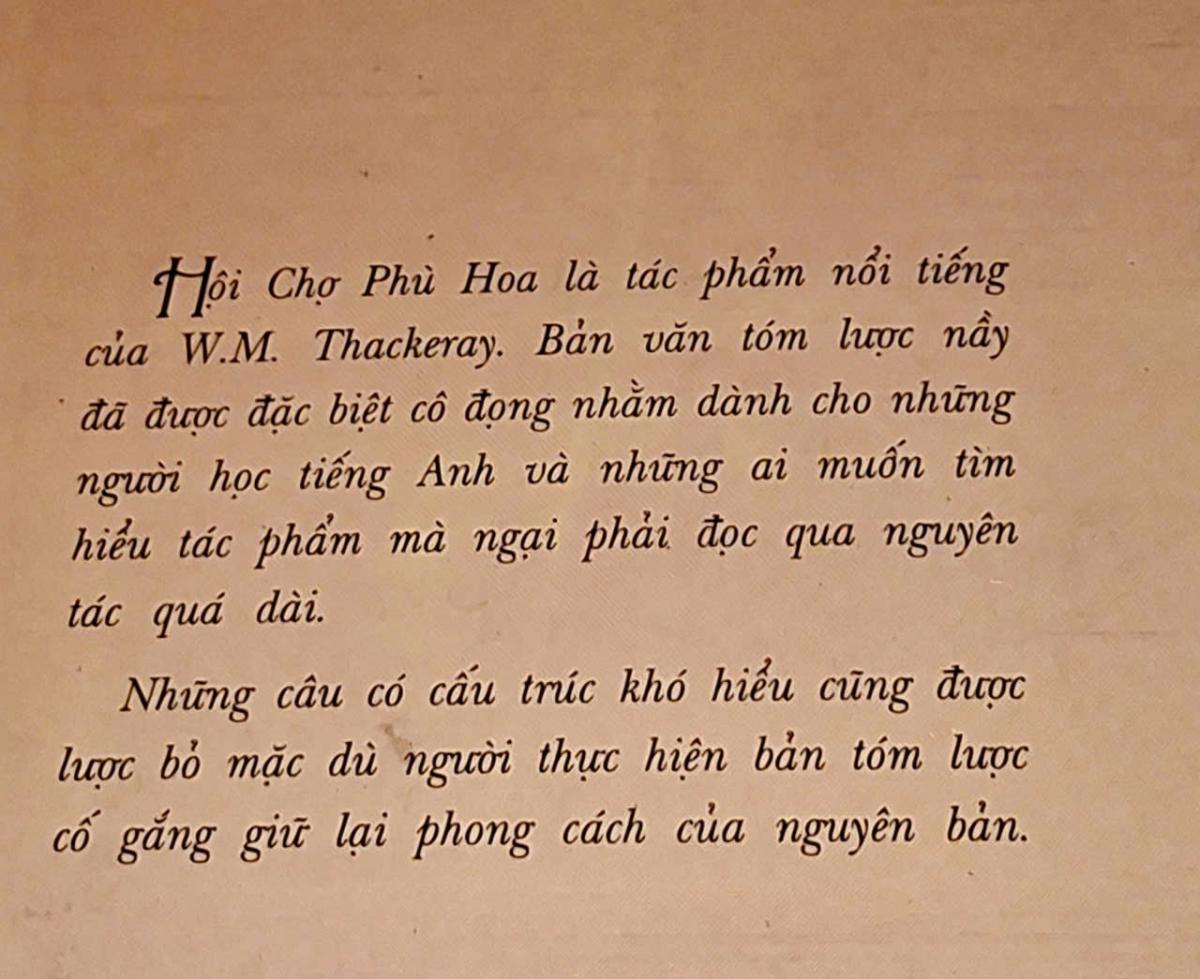 Hội Chợ Phù Hoa là tác phẩm nổi tiếng
của W.M. Thackeray. Bản văn tóm lược nầy
đã được đặc biệt cô đọng nhằm dành cho những
người học tiếng Anh và những ai muốn tìm
hiểu tác phẩm mà ngại phải đọc qua nguyên
tác quá dài.
Những câu có cấu trúc khó hiểu cũng được
lược bỏ mặc dù người thực hiện bản tóm lược
cố gắng giữ lại phong cách của nguyên bản.